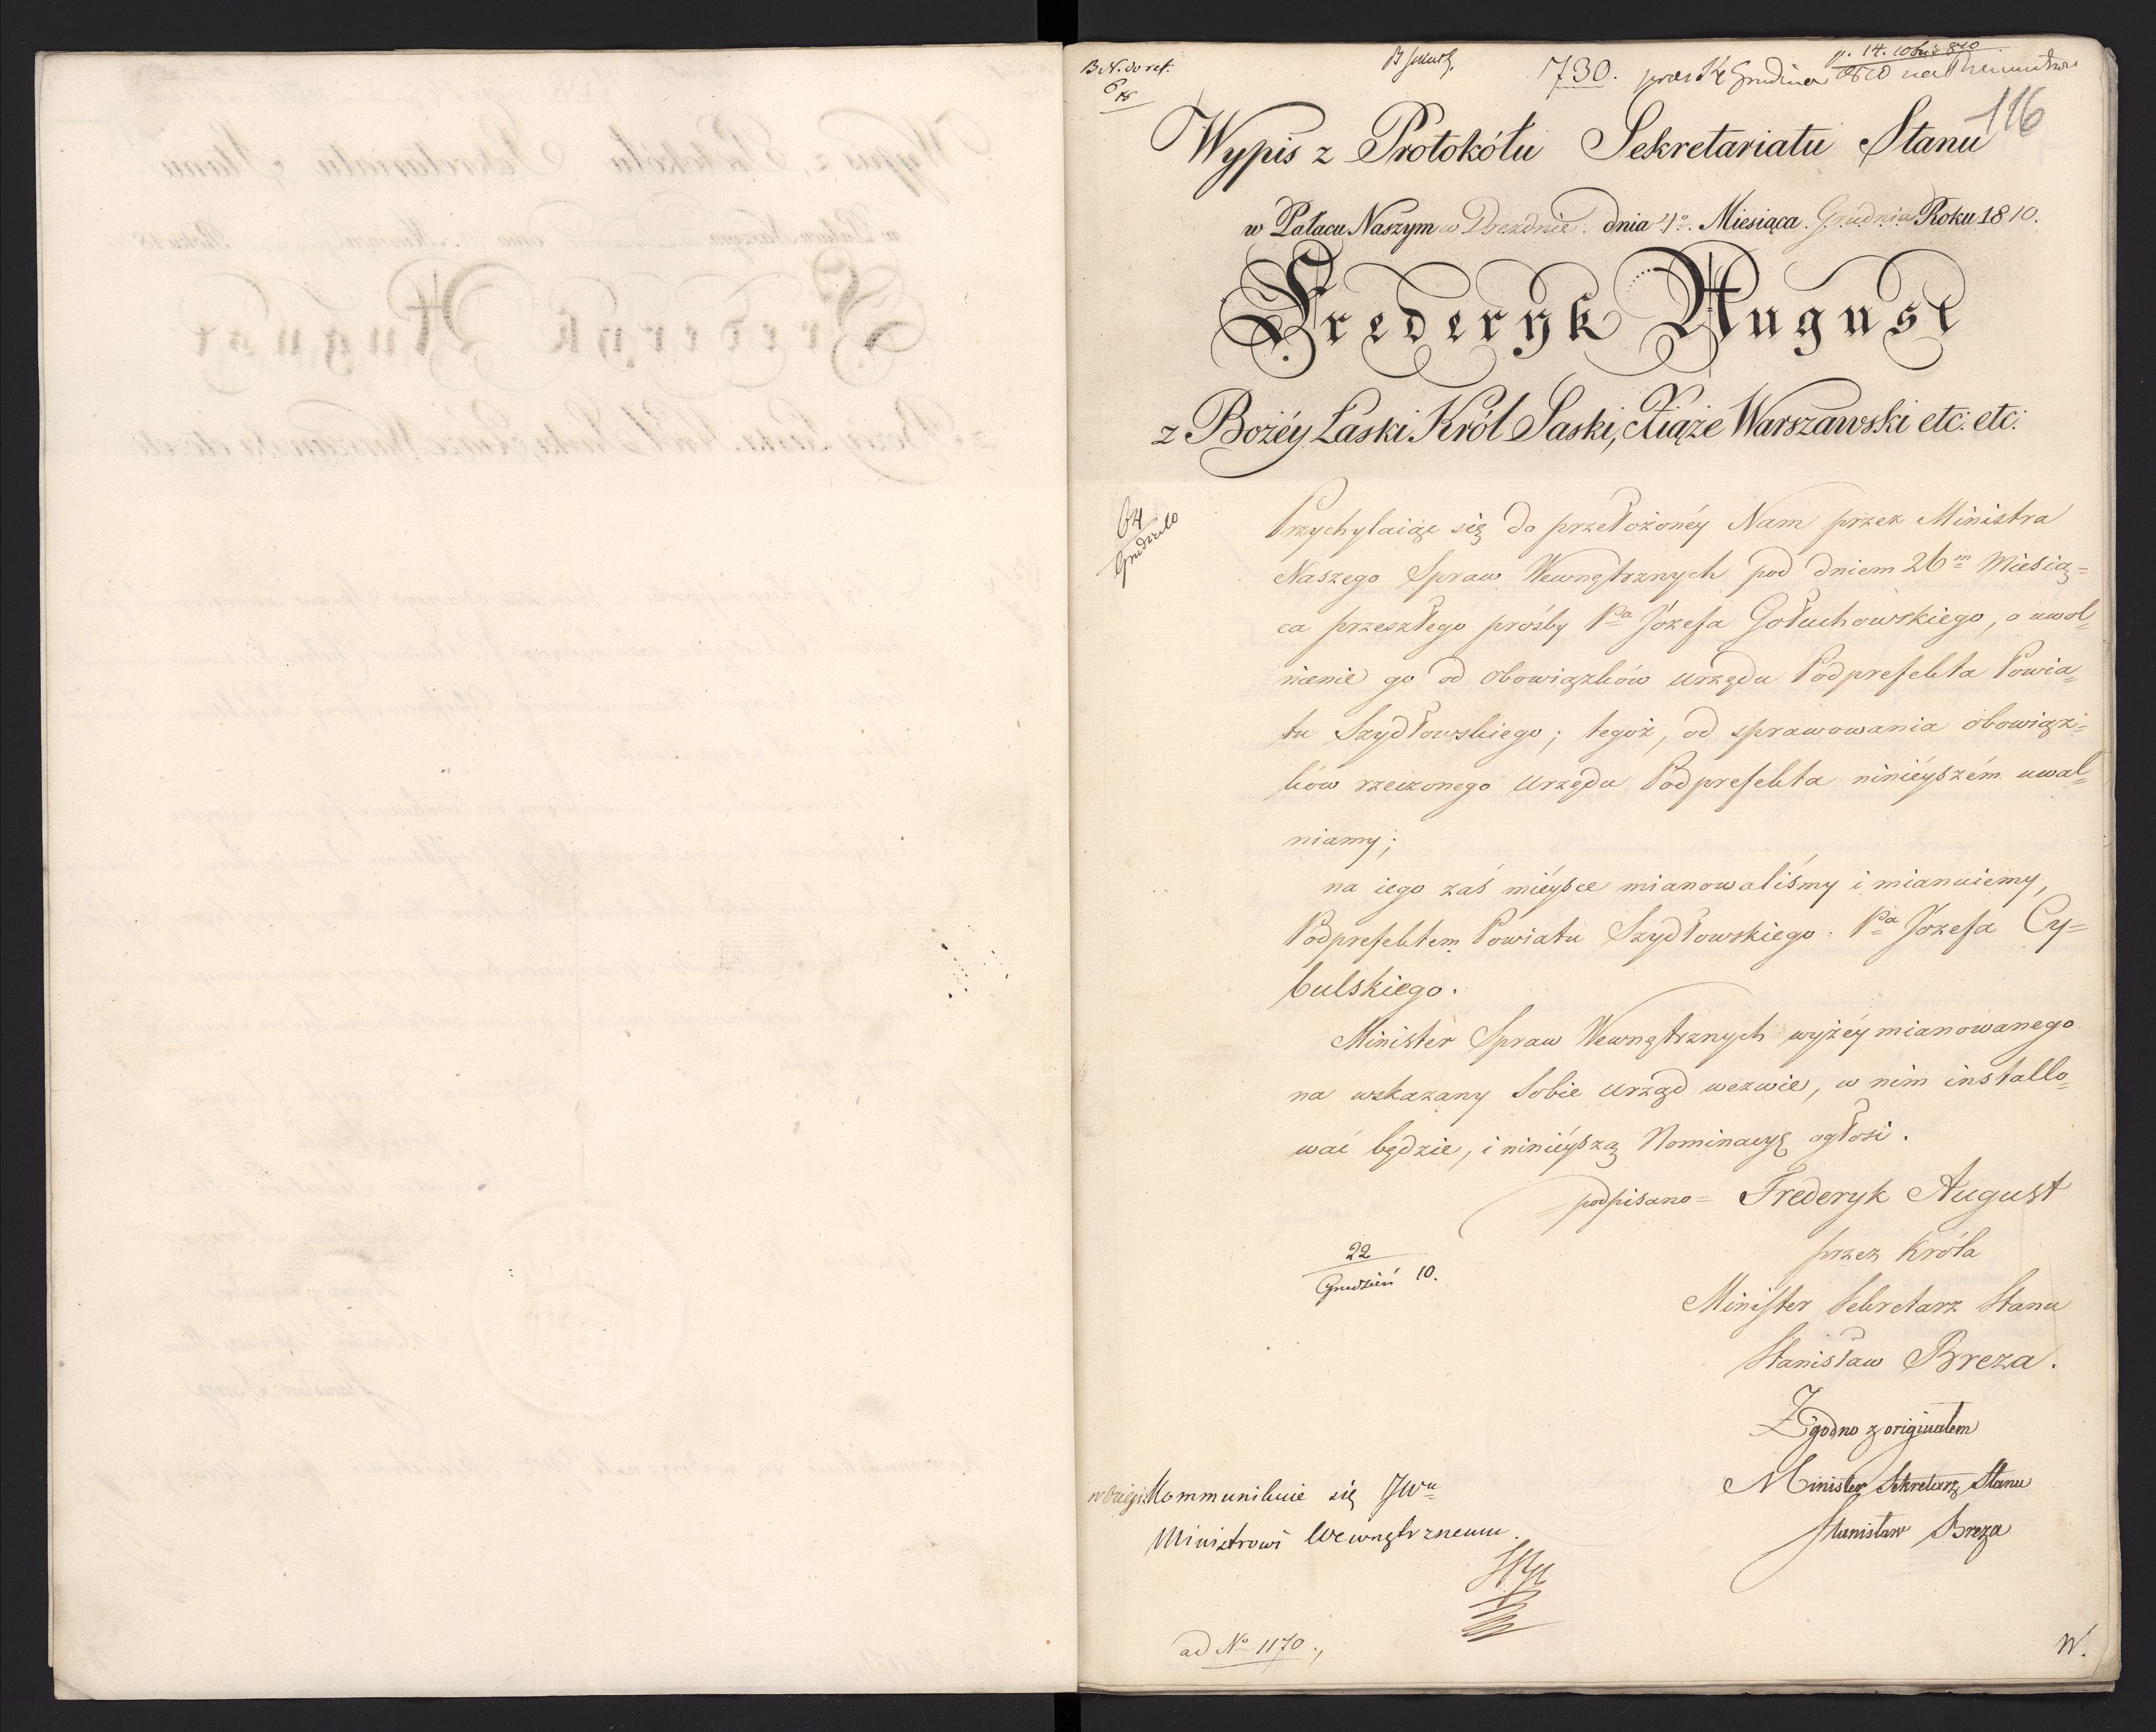 B N. do ref.
730.
116
Wypis z Protokółu Sekretariatu Stanu
w Pałacu Naszym w Dreznie. dnia 4º. Miesiąca Grudnia Roku 1810.
Frederyk August
z Bożéy Łaski Król Saski, Xiąże Warszawski etc: etc:
Przychylaiąc się do przełożonéy Nam przez Ministra
Naszego Spraw Wewnętrznych pod dniem 26m Miesią=
ca przeszłego prośby Pa Józefa Gołuchowskiego, o uwol=
nienie go od obowiązków urzędu Podprefekta Powia=
tu Szydłowskiego; tegoż, od sprawowania obowiąz=
ków rzeczonego Urzędu Podprefekta ninieyszém uwal=
niamy;
na iego zaś mieysce mianowaliśmy i mianuiemy,
Podprefektem Powiatu Szydłowskiego: Pa Józefa Cy=
bulskiego.
Minister Spraw Wewnętrznych wyżéy mianowanego
na wskazany Sobie urząd wezwie, w nim installo=
wać będzie, i ninieyszą Nominacyę ogłosi.
podpisano = Frederyk August
przez Króla
22
Grudzień 10.
Minister Sekretarz Stanu
Stanisław Breza.
Zgodno z originałem
Minister Sekretarz Stanu
Stanisław Breza
Kommunikuie się JWu
Ministrowi Wewnętrznemu.
ad No 1170.
W.